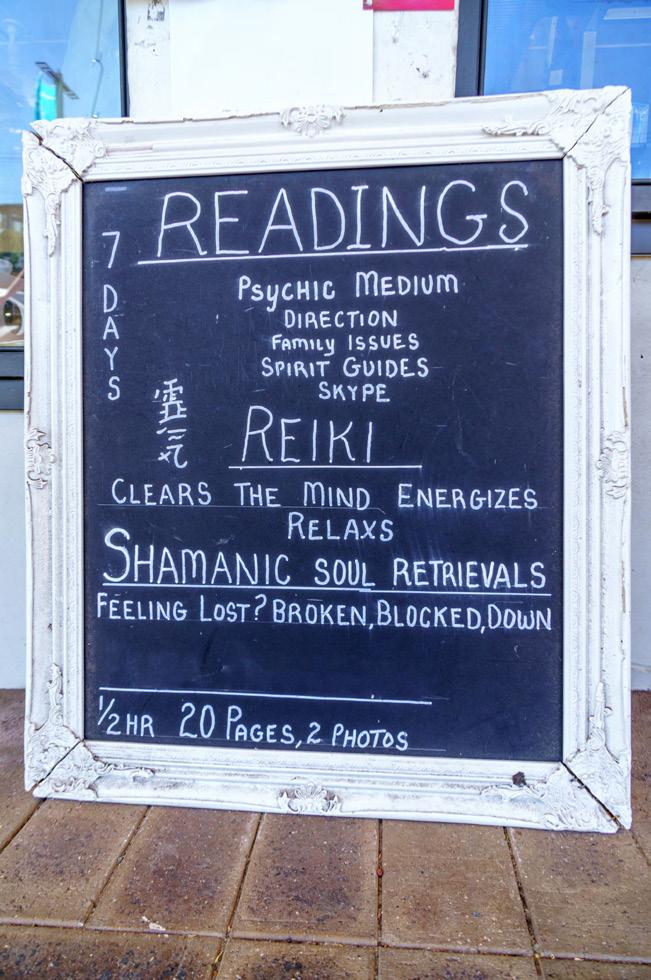 READINGS
7 DAYS
PSYCHIC MEDIUM
DIRECTION
FAMILY ISSUES
SPIRIT GUIDES
SKYPE
霊気
REIKI
CLEARS THE MIND ENERGIZES
RELAXS
SHAMANIC SOUL RETRIEVALS
FEELING LOST? BROKEN, BLOCKED, DOWN
1/2 HR 20 PAGES, 2 PHOTOS